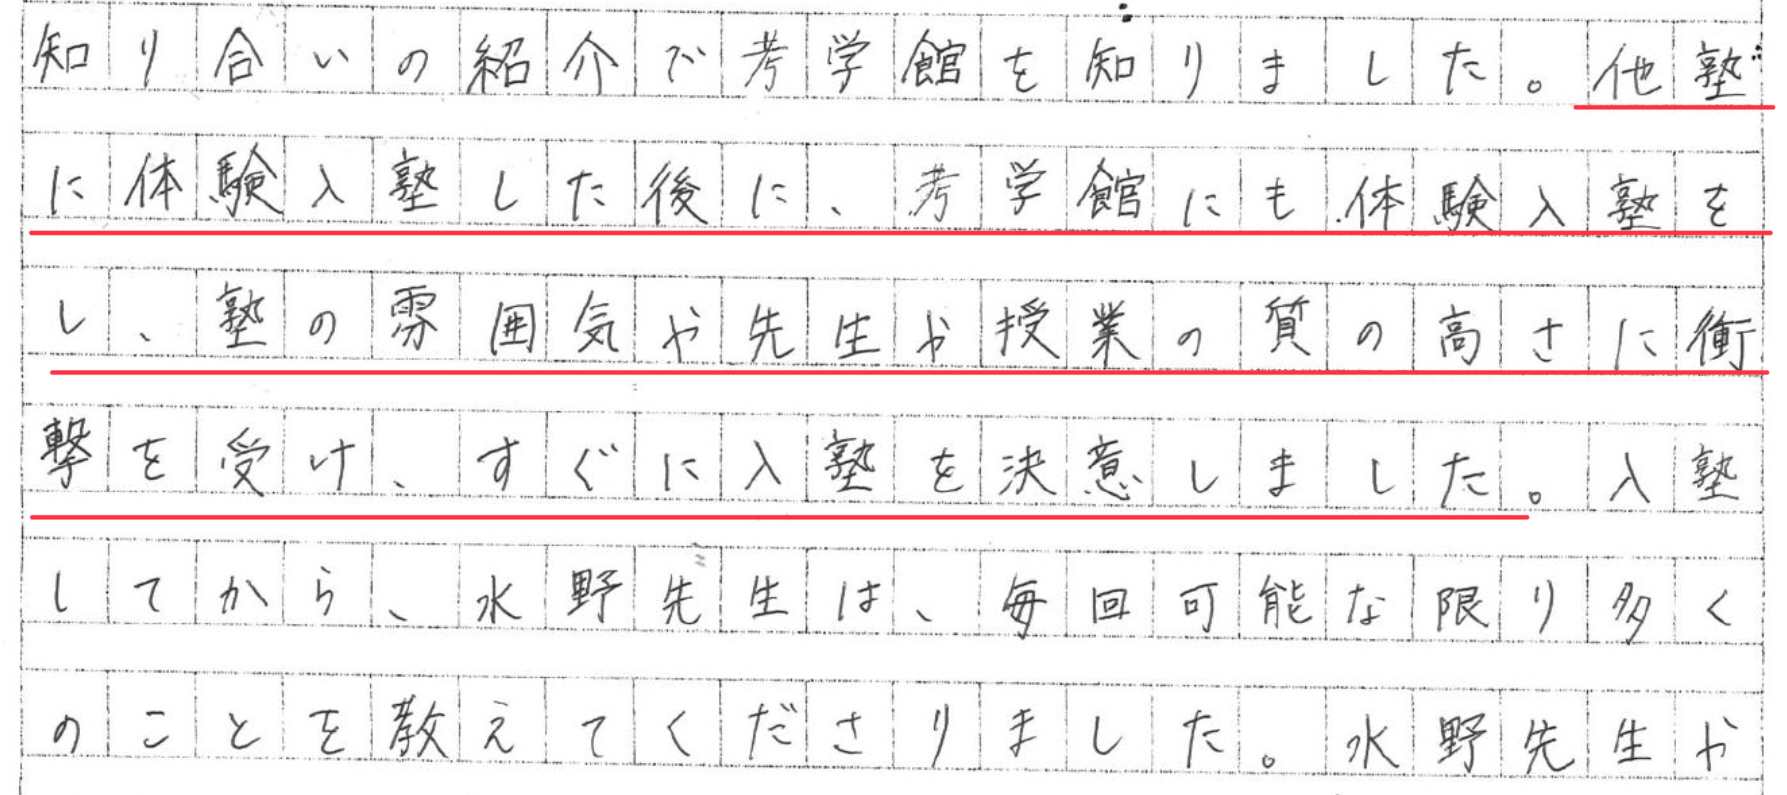 知り合いの紹介で考学館を知りました。他塾
に体験入塾した後に、考学館にも体験入塾を
し、塾の雰囲気や先生や授業の質の高さに衝
撃を受け、すぐに入塾を決意しました。入塾
してから、水野先生は、毎回可能な限り多く
のことを教えてくださりました。水野先生や